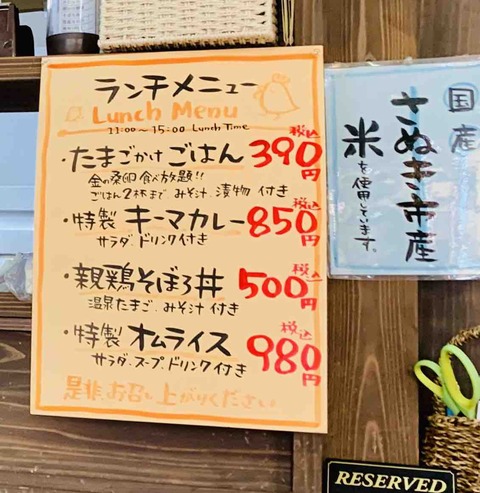 ランチメニュー
Lunch Menu
11:00～15:00 Lunch Time
・たまごかけごはん 税込390円
金の桑卵食べ放題!!
ごはん2杯まで みそ汁、漬物 付き
・特製 キーマカレー 税込850円
サラダ、ドリンク付き
・親鶏そぼろ丼 税込500円
温泉たまご、みそ汁 付き
・特製 オムライス 税込980円
サラダ、スープ、ドリンク付き
是非、お召し上がりください。
国産
さぬき市産
米を使用しています。
RESERVED